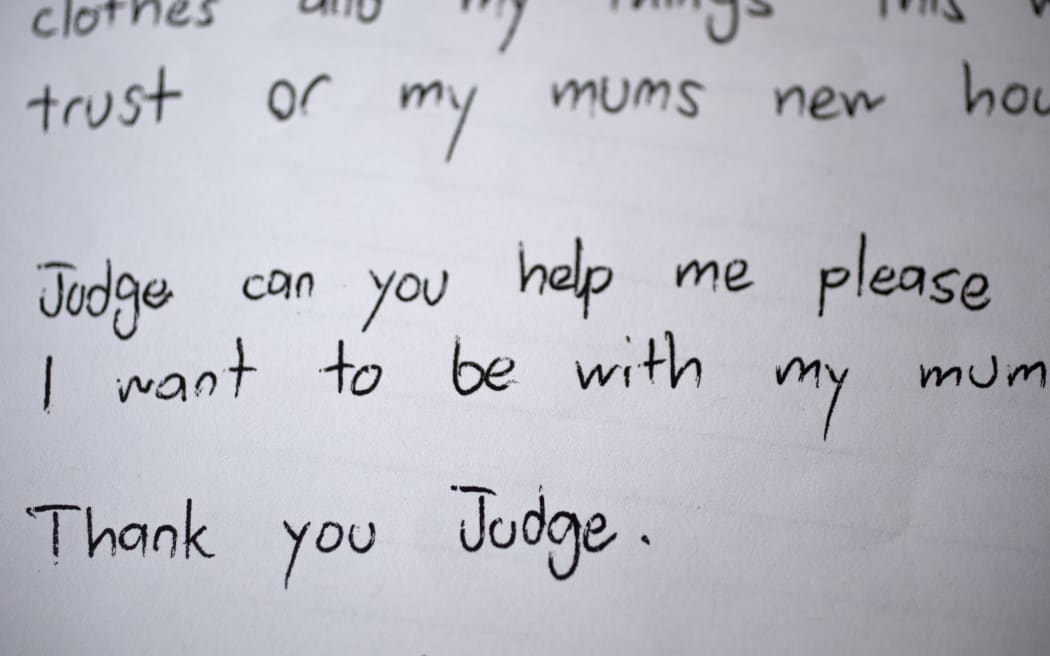 clothes and my things this
trust or my mums new hou
Judge can you help me please
I want to be with my mum
Thank you Judge.